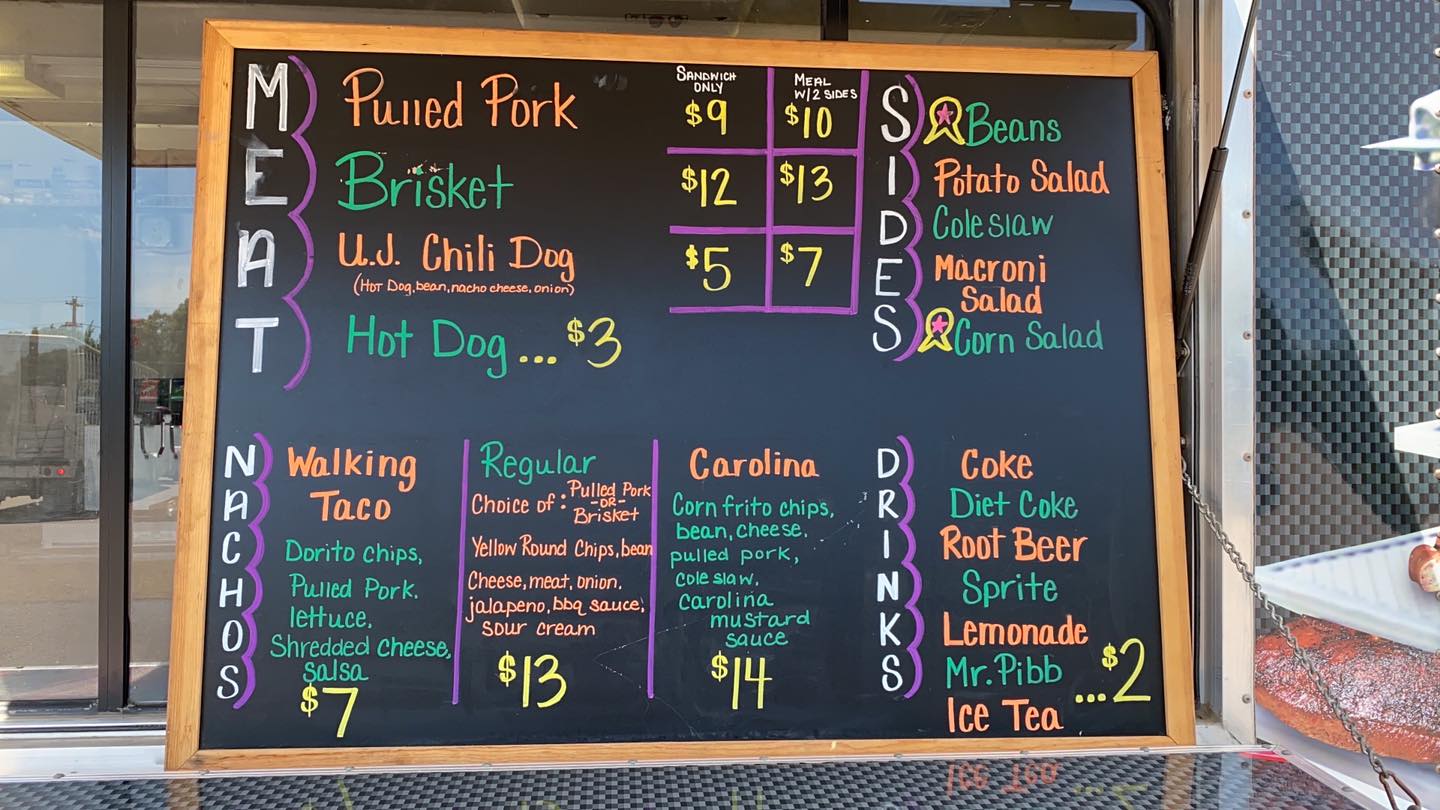 MEAT
Pulled Pork
Brisket
U.J. Chili Dog
(Hot Dog, bean, nacho cheese, onion)
Hot Dog ... $3
SANDWICH
ONLY
MEAL
W/2 SIDES
$9 $10
$12 $13
$5 $7
SIDES
Beans
Potato Salad
Coleslaw
Macroni
Salad
Corn Salad
NACHOS
Walking
Taco
Dorito chips,
Pulled Pork.
lettuce,
Shredded cheese,
salsa
$7
Regular
Choice of: Pulled Pork
-OR-
Brisket
Yellow Round Chips, bean
Cheese, meat, onion.
jalapeno, bbq sauce,
sour cream
$13
Carolina
Corn frito chips,
bean, cheese,
pulled pork,
cole slaw.
carolina
mustard
sauce
$14
DRINKS
Coke
Diet Coke
Root Beer
Sprite
Lemonade
Mr. Pibb ...$2
Ice Tea